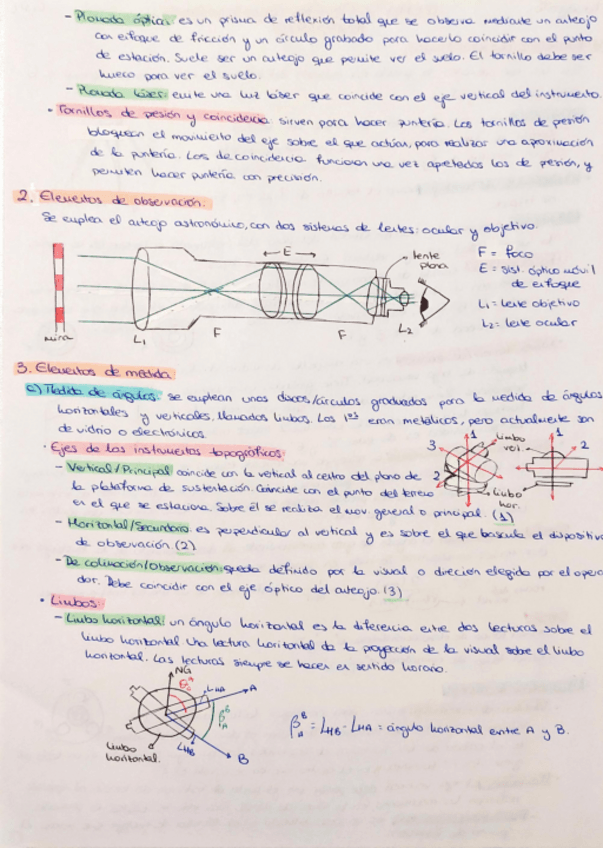 - Plomada óptica: es un prisma de reflexión total que se observa mediante un anteojo
con enfoque de fricción y un círculo grabado para hacerlo coincidir con el punto
de estación. Suele ser un anteojo que permite ver el suelo. El tornillo debe ser
hueco para ver el suelo.
- Plomada láser: emite una luz láser que coincide con el eje vertical del instrumento.
• Tornillos de presión y coincidencia: sirven para hacer puntería. Los tornillos de presión
bloquean el movimiento del eje sobre el que actúan, para realizar una aproximación
de la puntería. Los de coincidencia funcionan una vez apretados los de presión, y
permiten hacer puntería con precisión.
2. Elementos de observación.
Se emplea el anteojo astronómico, con dos sistemas de lentes: ocular y objetivo.
E
lente
plana
F = foco
E = sist. óptico móvil
de enfoque
L₁ = lente objetivo
L₂ = lente ocular
mira
L₁
F
F
L₂
3. Elementos de medida
c) Medida de ángulos: se emplean unos discos/círculos graduados para la medida de ángulos
horizontales y verticales, llamados limbos. Los 1ºˢ eran metálicos, pero actualmente son
de vidrio o electrónicos.
· Ejes de los instrumentos topográficos:
- Vertical/Principal: coincide con la vertical al centro del plano de
la plataforma de sustentación. Coincide con el punto del terreno
en el que se estaciona. Sobre él se realiza el mov. general o principal. (1)
3
1
2
limbo
ver.
limbo
hor.
1
2
- Horizontal/Secundario: es perpendicular al vertical y es sobre el que bascula el dispositivo
de observación (2)
- De colimación/observación: queda definido por la visual o dirección elegida por el opera
dor. Debe coincidir con el eje óptico del anteojo. (3)
• Limbos:
- Limbo horizontal: un ángulo horizontal es la diferencia entre dos lecturas sobre el
limbo horizontal. Una lectura horizontal da la proyección de la visual sobre el limbo
horizontal. Las lecturas siempre se hacen en sentido horario.
NG
LHA
A
β
LHB
B
limbo
horizontal.
β = LHB - LHA = ángulo horizontal entre A y B.